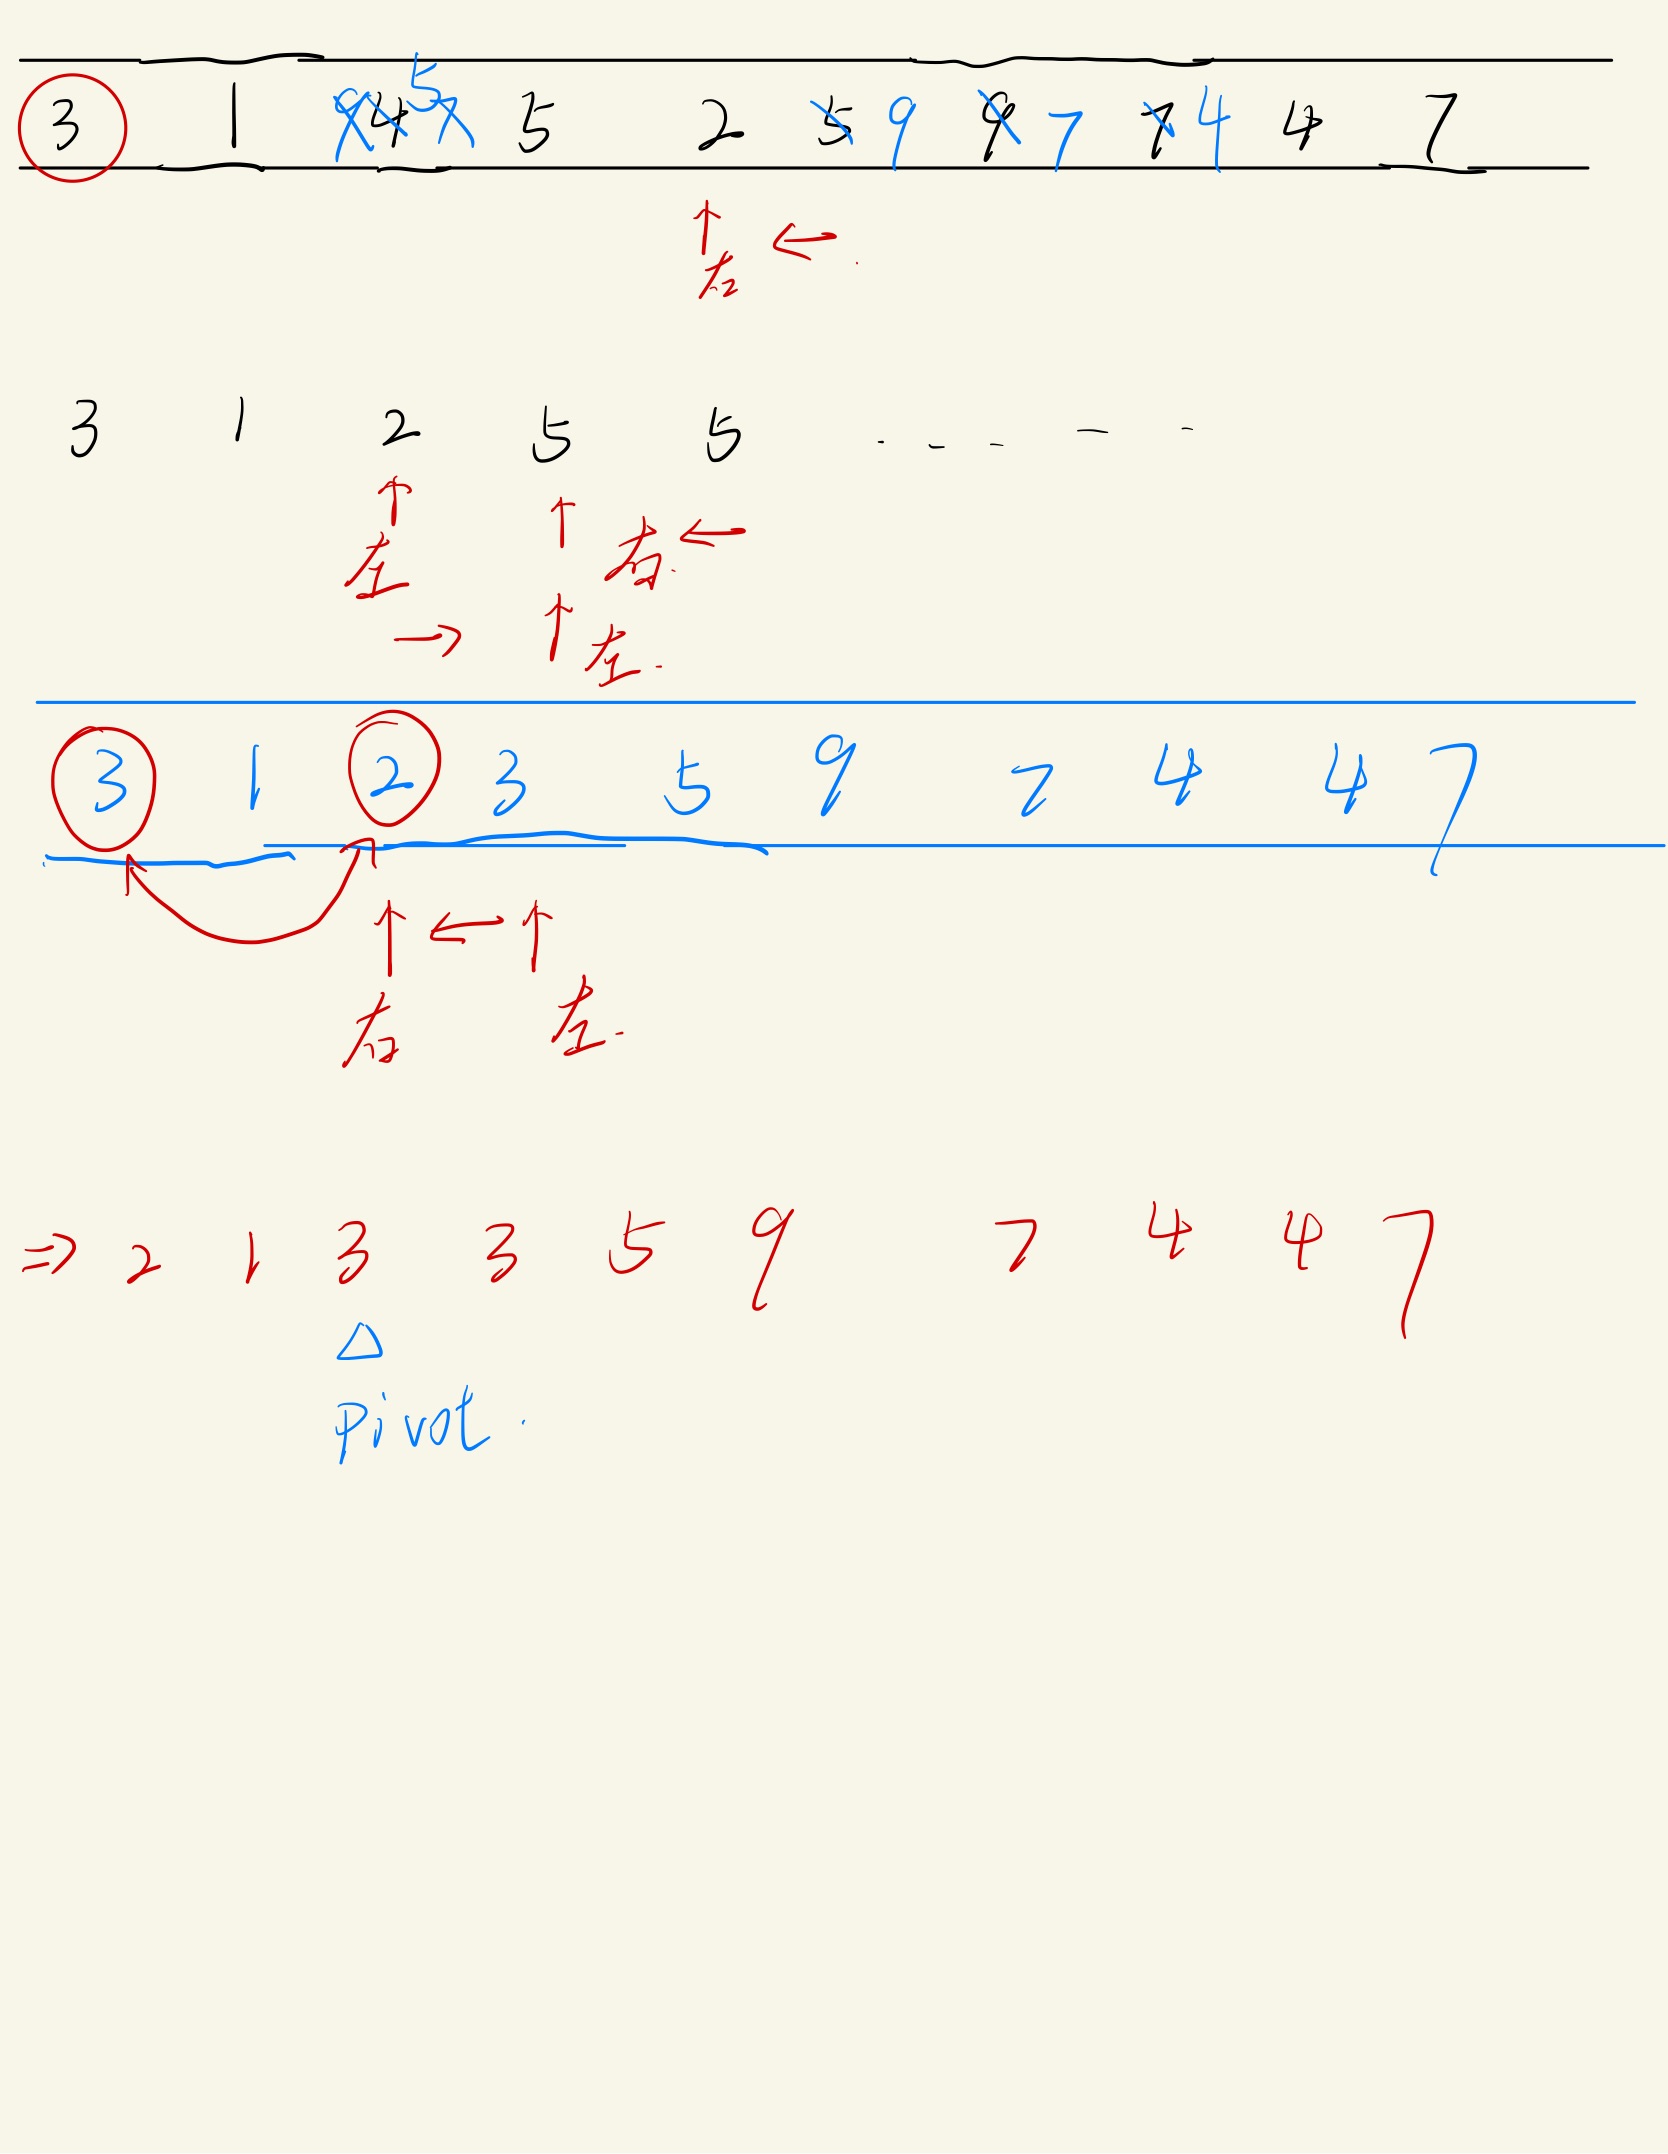 3 1 9 4 5 7 5 2 5 9 9 7 7 4 4 7
右
3 1 2 5 5 - - - - -
左 右
→ 左
3 1 2 3 5 9 7 4 4 7
右 左
⇒ 2 1 3 3 5 9 7 4 4 7
△
pivot